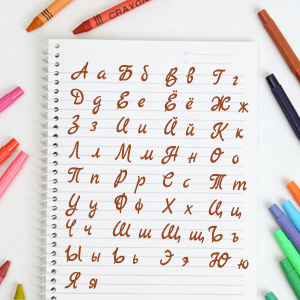 CRAYON
А а Б б В в Г г
Д д Е е Ё ё Ж ж
З з И и Й й К к
Л л М м Н н О о
П п Р р С с Т т
У у Ф ф Х х Ц ц
Ч ч Ш ш Щ щ Ъ ъ
Ы ы Ь ь Э э Ю ю
Я я